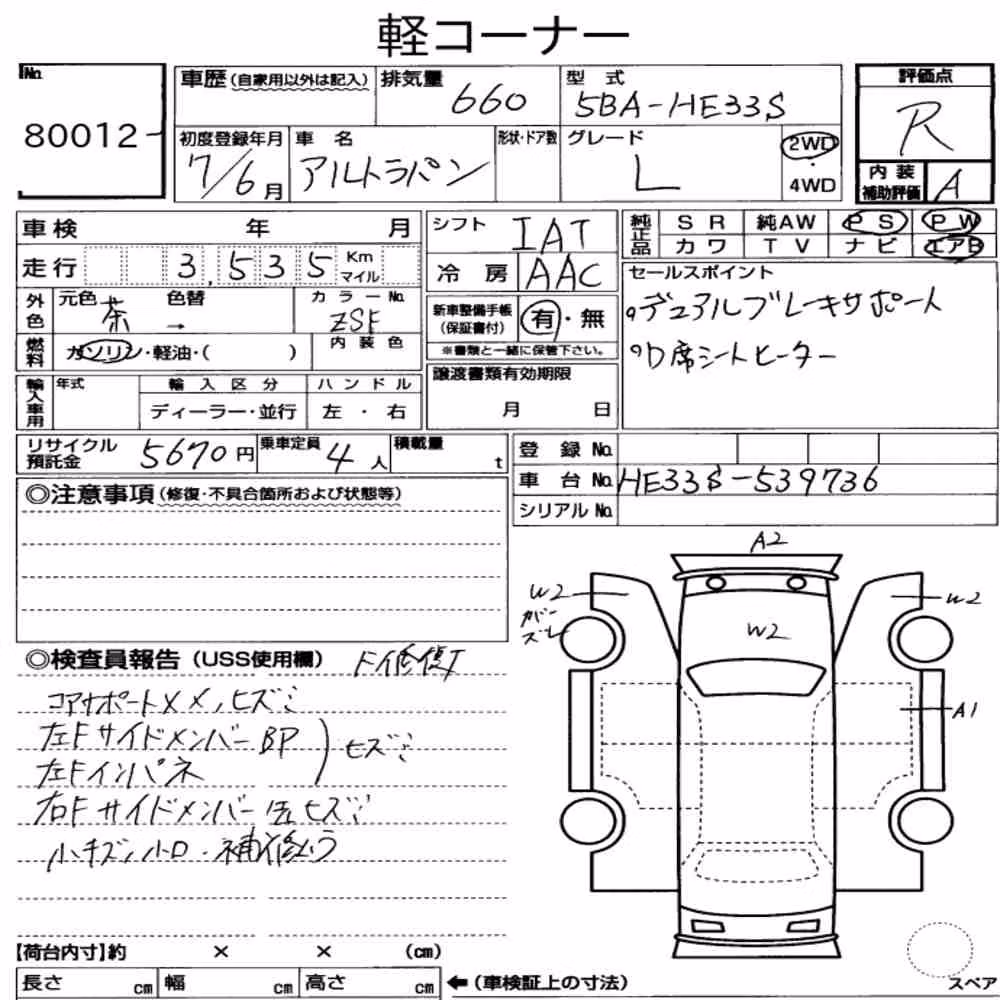 軽コーナー
No.
80012-
車歴 (自家用以外は記入)
排気量
660
型式
5BA-HE33S
評価点
R
初度登録年月
7/6月
車名
アルトラパン
形状・ドア数
グレード
L
2WD
・
4WD
内装
補助評価
A
車検 年 月
シフト
IAT
純正品
SR 純AW PS PW
カワ TV ナビ エアB
走行
3,535
Km
マイル
冷房
AAC
セールスポイント
デュアルブレーキサポート
D席シートヒーター
外色
元色
茶
色替
→
カラーNo.
ZSF
新車整備手帳
(保証書付)
有・無
※書類と一緒に保管下さい。
燃料
ガソリン・軽油・( )
内装色
輸入車用
年式
輸入区分
ディーラー・並行
ハンドル
左・右
譲渡書類有効期限
月 日
リサイクル
預託金
5670円
乗車定員
4人
積載量
t
登録No.
車台No.
HE33S-539736
シリアルNo.
◎注意事項 (修復・不具合箇所および状態等)
A2
W2
カバー
ズレ
W2
W2
A1
◎検査員報告 (USS使用欄)
コアサポート
ヒズミ
左FサイドメンバーBP
左Fインパネ
ヒズミ
右Fサイドメンバー
ヒズミ
小キズ
【荷台内寸】約 × × (cm)
長さ cm 幅 cm 高さ cm
←(車検証上の寸法)
スペア